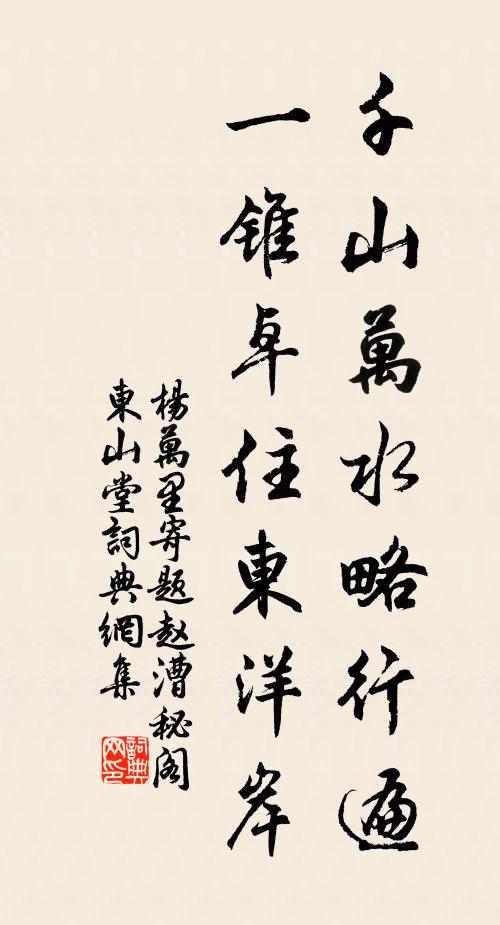 千山萬水略行遍
一錐卓住東洋岸
楊萬里寄題赵漕秘阁
東山堂詞典網集
詞典
网印